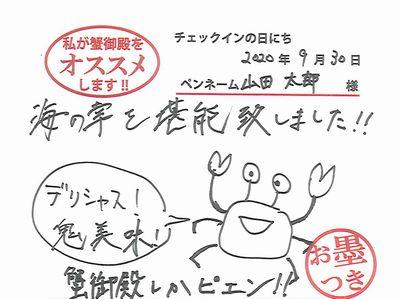 私が蟹御殿を
オススメ
します!!
チェックインの日にち
2020年9月30日
ペンネーム 山田 太郎 様
海の幸を堪能致しました!!
デリシャス!
鬼美味!!
蟹御殿しかピエン!!
お墨
つき